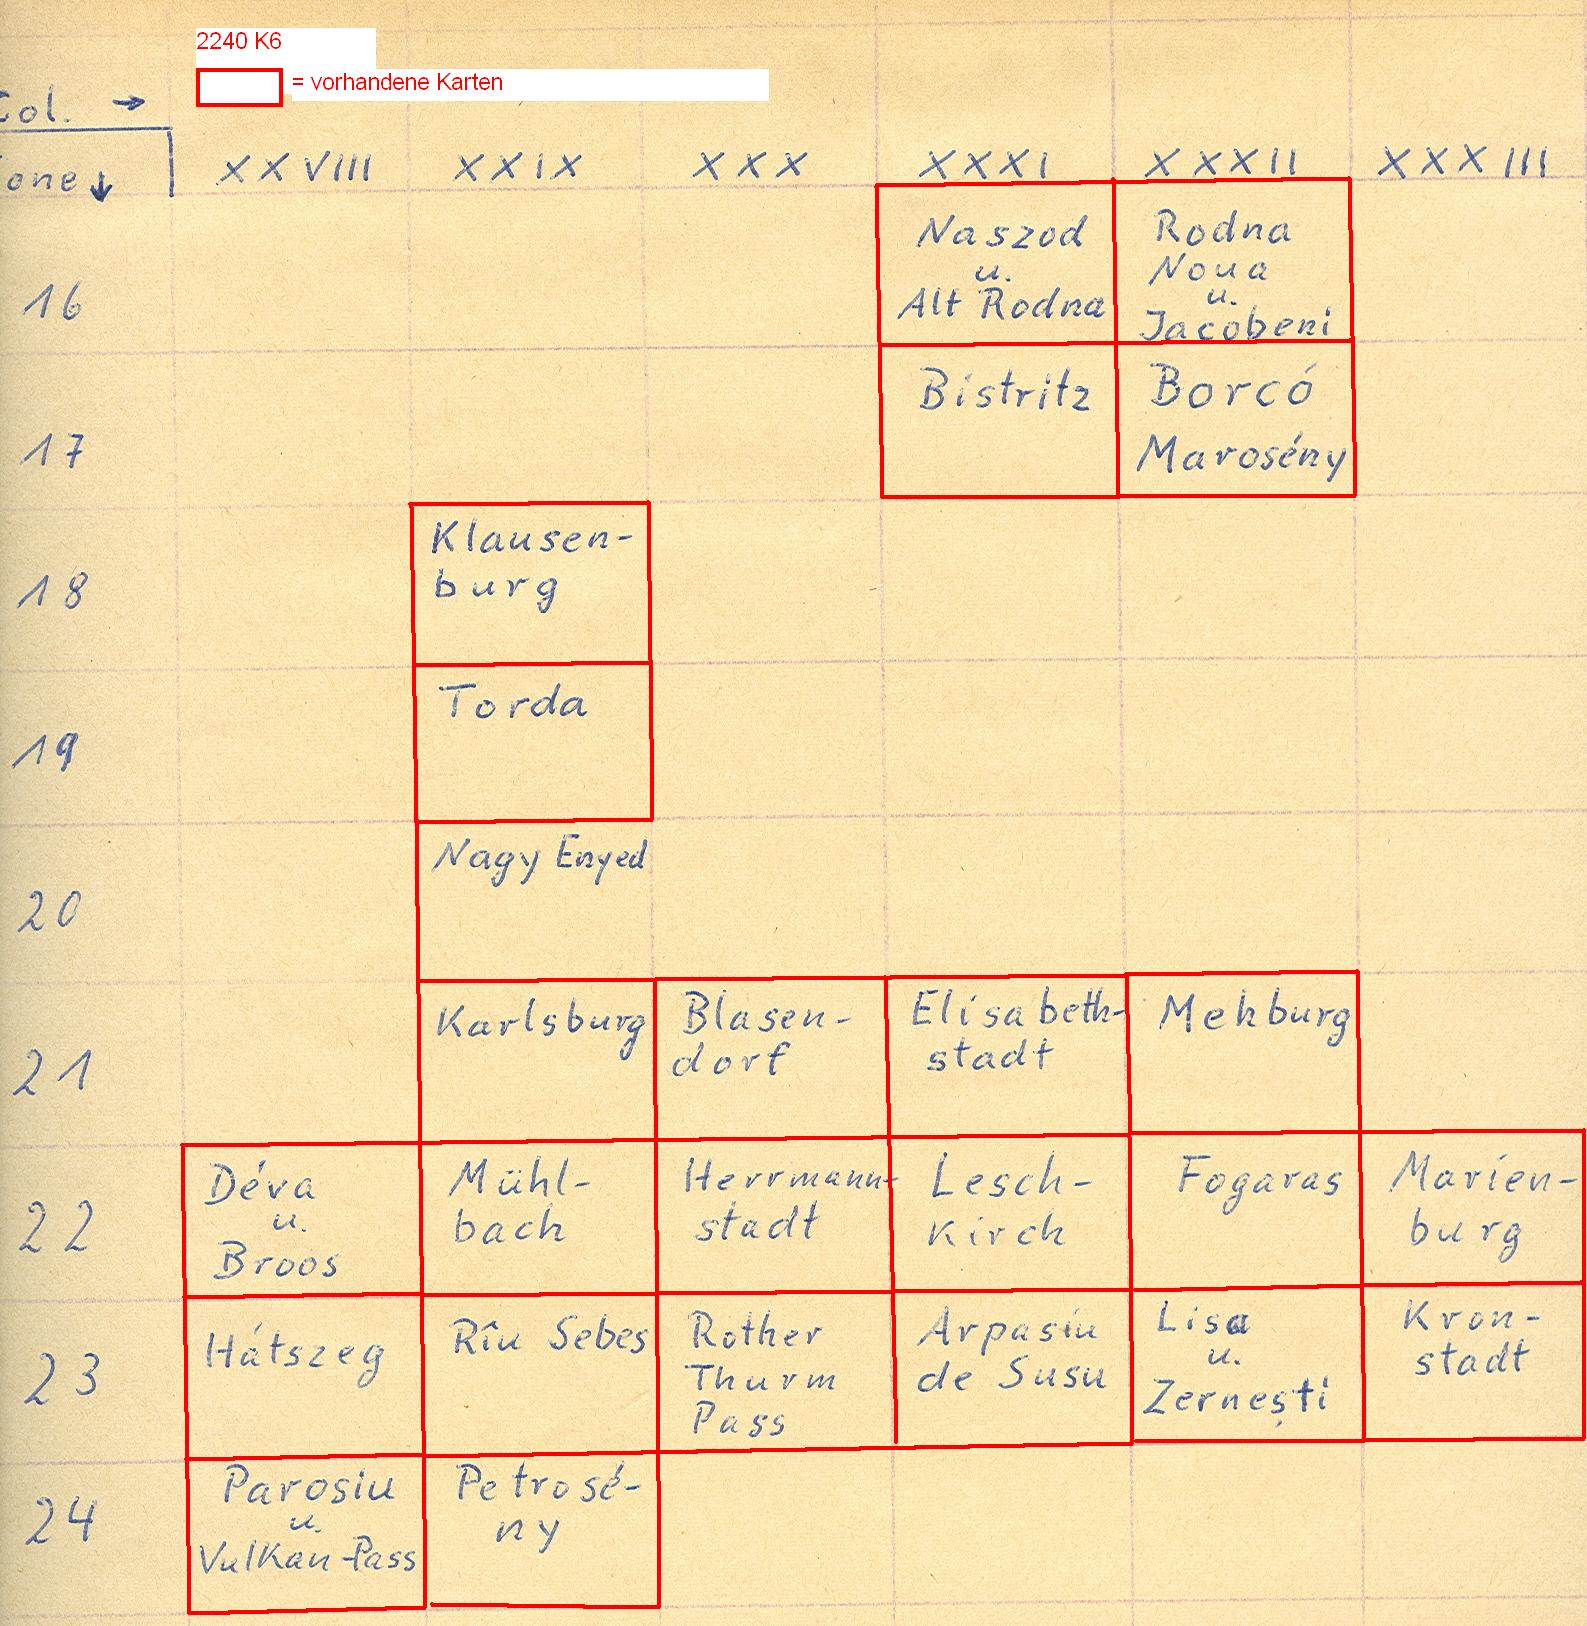 2240 K6
= vorhandene Karten
Col. →
Zone ↓
XXVIII XXIX XXX XXXI XXXII XXXIII
16
Naszod
u.
Alt Rodna
Rodna
Noua
u.
Jacobeni
17
Bistritz
Borcó
Marosény
18
Klausen-
burg
19
Torda
20
Nagy Enyed
21
Karlsburg
Blasen-
dorf
Elisabeth-
stadt
Mehburg
22
Déva
u.
Broos
Mühl-
bach
Herrmann-
stadt
Lesch-
Kirch
Fogaras
Marien-
burg
23
Hátszeg
Rîu Sebes
Rother
Thurm
Pass
Arpasiu
de Susu
Lisa
u.
Zernești
Kron-
stadt
24
Parosiu
u.
Vulkan-Pass
Petrosé-
ny